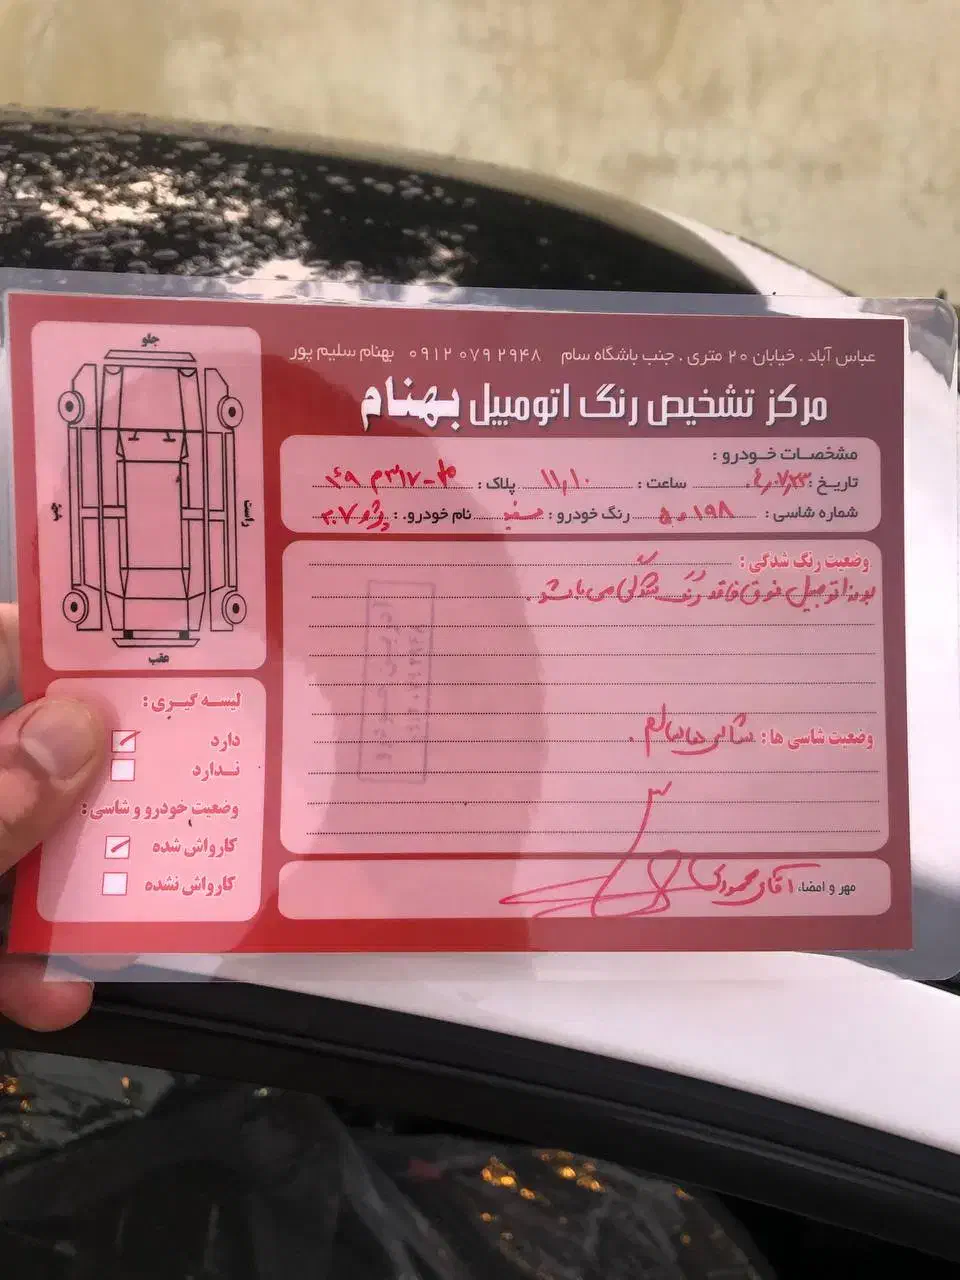 عباس آباد . خیابان ۲۰ متری . جنب باشگاه سام ۰۹۱۲ ۰۷۹ ۲۹۴۸ بهنام سلیم پور
مرکز تشخیص رنگ اتومبیل بهنام
مشخصات خودرو :
تاریخ : ساعت : ۱۱,۱۰ پلاک :
شماره شاسی : رنگ خودرو : سفید نام خودرو. : پژو ۲۰۷
وضعیت رنگ شدگی :
اتومبیل فوق فاقد رنگ شدگی می باشد .
وضعیت شاسی ها : شاسی ها سالم .
مهر و امضاء، آقای محمودی
جلو
چپ
راست
عقب
لیسه گیری :
دارد
ندارد
وضعیت خودرو و شاسی :
کارواش شده
کارواش نشده